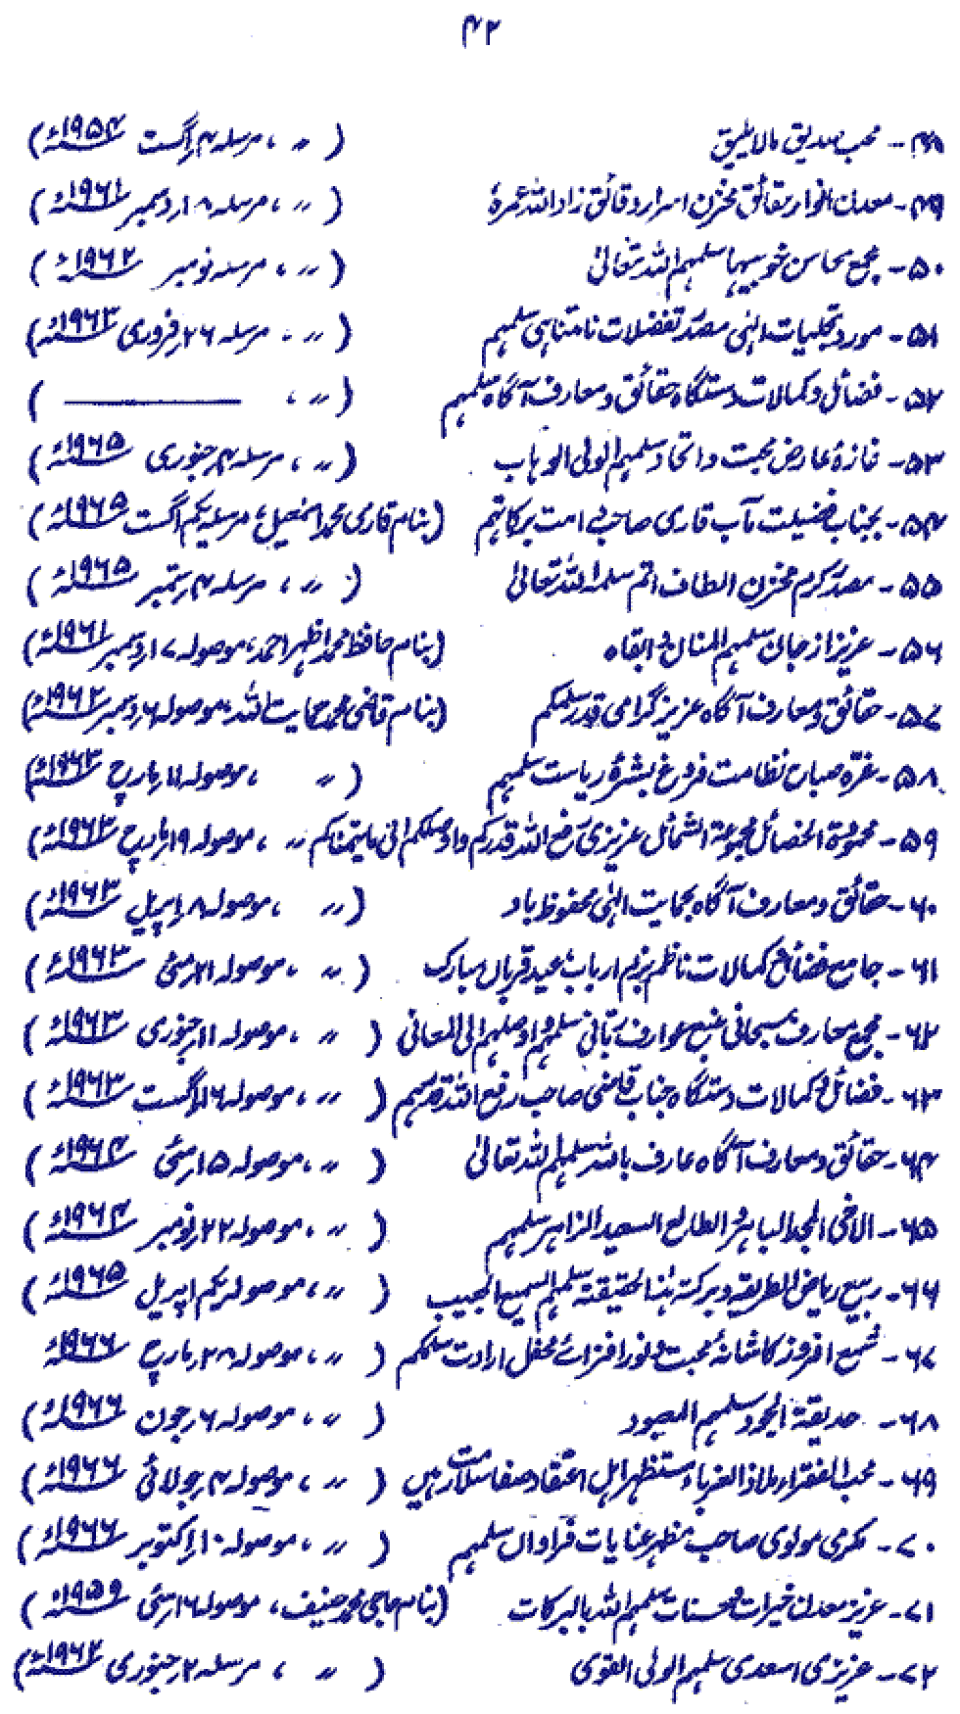 ۴۲
۴۸- محب صدیق مالا یلیق ( " ، مرسلہ ۴ اگست ۱۹۵۴ء)
۴۹- معدن انوار حقائق مخزن اسرار دقائق زاد اللہ عمرہٗ ( " ، مرسلہ ۱۸ دسمبر ۱۹۶۱ء)
۵۰- مجمع محاسن خوبیہا سلمہم اللہ تعالیٰ ( " ، مرسلہ نومبر ۱۹۶۲ء)
۵۱- مورد تجلیات الہٰی مصدر تفضلات نامتناہی سلمہم ( " ۔ مرسلہ ۲۶ فروری ۱۹۶۳ء)
۵۲- فضائل و کمالات دستگاہ حقائق و معارف آگاہ سلمہم ( " ، ــــــــــــ )
۵۳- غازۂ عارض محبت و اتحاد سلمہم الولی الوہاب ( " ، مرسلہ ۴ جنوری ۱۹۶۵ء)
۵۴- بجناب فضیلت مآب قاری صاحب دامت برکاتہم (بنام قاری محمد اسمٰعیل، مرسلہ یکم اگست ۱۹۶۵ء)
۵۵- مصدر کرم مخزن الطاف اتم سلمہ اللہ تعالیٰ ( " ، مرسلہ ۴ ستمبر ۱۹۶۵ء)
۵۶- عزیز از جان سلمہم المنان و ابقاہ (بنام حافظ محمد اظہر احمد، موصولہ ۱۷ دسمبر ۱۹۶۱ء)
۵۷- حقائق و معارف آگاہ عزیز گرامی قدر سلمکم (بنام قاضی محمد حمایت اللہ، موصولہ ۶ دسمبر ۱۹۶۲ء)
۵۸- غرّہ صباح نظامت فروغ بشرۂ ریاست سلمہم ( " ، موصولہ ۱۱ مارچ ۱۹۶۳ء)
۵۹- محمودۃ الخصائل مجموعۃ الشمائل عزیزی رفع اللہ قدرکم واوصلکم الی مایتمناکم " ، موصولہ ۱۹ مارچ ۱۹۶۳ء)
۶۰- حقائق و معارف آگاہ بحمایت الہٰی محفوظ باد ( " ، موصولہ ۸ اپریل ۱۹۶۳ء)
۶۱- جامع فضائل کمالات ناظم بزم ارباب عید قرباں مبارک ( " ، موصولہ ۲۱ مئی ۱۹۶۳ء)
۶۲- مجمع معارف سبحانی منبع عوارف ربّانی سلمہم و اوصلہم الی المعانی ( " ، موصولہ ۱۱ جنوری ۱۹۶۳ء)
۶۳- فضائل و کمالات دستگاہ جناب قاضی صاحب رفع اللہ قدرہم ( " ، موصولہ ۱۶ اگست ۱۹۶۳ء)
۶۴- حقائق و معارف آگاہ عارف باللہ سلمہم اللہ تعالیٰ ( " ، موصولہ ۱۵ مئی ۱۹۶۴ء)
۶۵- الاخی المجد الباہر و الطالع السعید الزاہر سلمہم ( " ، موصولہ ۲۲ نومبر ۱۹۶۴ء)
۶۶- ربیع ریاض الطریقہ و برکتہ ہٰذا لحقیقتہ سلمہم السمیع المجیب ( " ، موصولہ یکم اپریل ۱۹۶۵ء)
۶۷- شمع افروز کاشانۂ محبت و نور افزائے محفل ارادت سلمکم ( " ، موصولہ ۲۸ مارچ ۱۹۶۶ء
۶۸- حدیقۃ الجود سلمہم المعبود ( " ، موصولہ ۶ جون ۱۹۶۶ء)
۶۹- محب الفقراء ملاذ الغرباء مستظہر اہل اعتقاد و صفا سلامت رہیں ( " ، موصولہ ۴ جولائی ۱۹۶۶ء)
۷۰- مکرمی مولوی صاحب مظہر عنایات فراواں سلمہم ( " ، موصولہ ۱۰ اکتوبر ۱۹۶۶ء)
۷۱- عزیز معدن خیرات و حسنات سلمہم اللہ بالبرکات (بنام حاجی محمد حنیف، موصولہ ۱۶ مئی ۱۹۵۹ء)
۷۲- عزیزی اسعدی سلمہم الولی القوی ( " ، مرسلہ ۲ جنوری ۱۹۶۲ء)